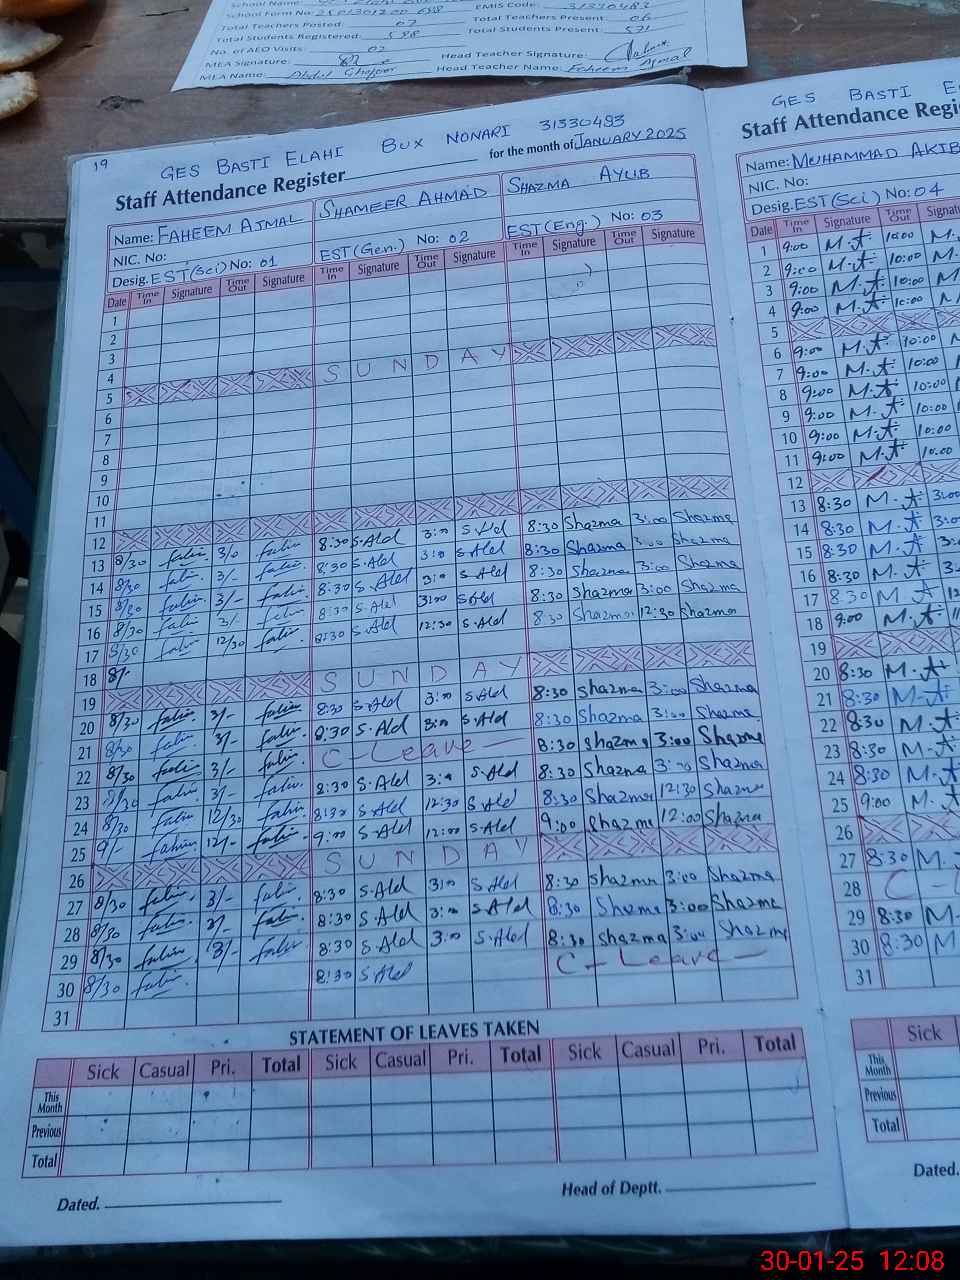 School Name:
School Form No: EMIS Code: 31330483
Total Teachers Posted: 07 Total Teachers Present: 06
Total Students Registered: 598 Total Students Present: 571
No. of AEO Visits: 02
MEA Signature: Head Teacher Signature:
MEA Name: Abdul Ghafoor Head Teacher Name: Faheem Ajmal
19 GES BASTI ELAHI BUX NONARI 31330493
Staff Attendance Register for the month of JANUARY 2025
Name: FAHEEM AJMAL SHAMEER AHMAD SHAZMA AYUB
NIC. No:
Desig. EST(Sci) No: 01 EST(Gen.) No: 02 EST(Eng.) No: 03
Date Time In Signature Time Out Signature Time In Signature Time Out Signature Time In Signature Time Out Signature
1
2
3
4 SUNDAY
5
6
7
8
9
10
11
12
13 8/30 3/- 8:30 S.Ald 3:00 S.Ald 8:30 Shazma 3:00 Shazma
14 8/30 3/- 8:30 S.Ald 3:00 S.Ald 8:30 Shazma 3:00 Shazma
15 8/30 3/- 8:30 S.Ald 3:00 S.Ald 8:30 Shazma 3:00 Shazma
16 8/30 3/- 8:30 S.Ald 3:00 S.Ald 8:30 Shazma 3:00 Shazma
17 8/30 12/30 8:30 S.Ald 12:30 S.Ald 8:30 Shazma 12:30 Shazma
18 8/-
19 SUNDAY
20 8/30 3/- 8:30 S.Ald 3:00 S.Ald 8:30 Shazma 3:00 Shazma
21 8/30 3/- 8:30 S.Ald 3:00 S.Ald 8:30 Shazma 3:00 Shazma
22 8/30 3/- C-Leave 8:30 Shazma 3:00 Shazma
23 8/30 3/- 8:30 S.Ald 3:00 S.Ald 8:30 Shazma 3:00 Shazma
24 8/30 12/30 8:30 S.Ald 12:30 S.Ald 8:30 Shazma 12:30 Shazma
25 9/- 12/- 9:00 S.Ald 12:00 S.Ald 9:00 Shazma 12:00 Shazma
26 SUNDAY
27 8/30 3/- 8:30 S.Ald 3:00 S.Ald 8:30 Shazma 3:00 Shazma
28 8/30 3/- 8:30 S.Ald 3:00 S.Ald 8:30 Shazma 3:00 Shazma
29 8/30 3/- 8:30 S.Ald 3:00 S.Ald 8:30 Shazma 3:00 Shazma
30 8/30 8:30 S.Ald C-Leave
31
STATEMENT OF LEAVES TAKEN
Sick Casual Pri. Total Sick Casual Pri. Total Sick Casual Pri. Total
This Month
Previous
Total
Dated. Head of Deptt.
GES BASTI
Staff Attendance
Name: MUHAMMAD AKIB
NIC. No:
Desig. EST(Sci) No: 04
Date Time In Signature Time Out
1 9:00 M.A 10:00 M.
2 9:00 M.A 10:00 M.
3 9:00 M.A 10:00
4 9:00 M.A 10:00
5
6 9:00 M.A 10:00
7 9:00 M.A 10:00
8 9:00 M.A 10:00
9 9:00 M.A 10:00
10 9:00 M.A 10:00
11 9:00 M.A 10:00
12
13 8:30 M.A
14 8:30 M.A
15 8:30 M.A
16 8:30 M.A
17 8:30 M.A
18 9:00 M.A
19
20 8:30 M.A
21 8:30 M.A
22 8:30 M.A
23 8:30 M.A
24 8:30 M.A
25 9:00 M.A
26
27 8:30 M.
28 C-
29 8:30 M
30 8:30 M
31
Sick
This Month
Previous
Total
Dated.
30-01-25 12:08